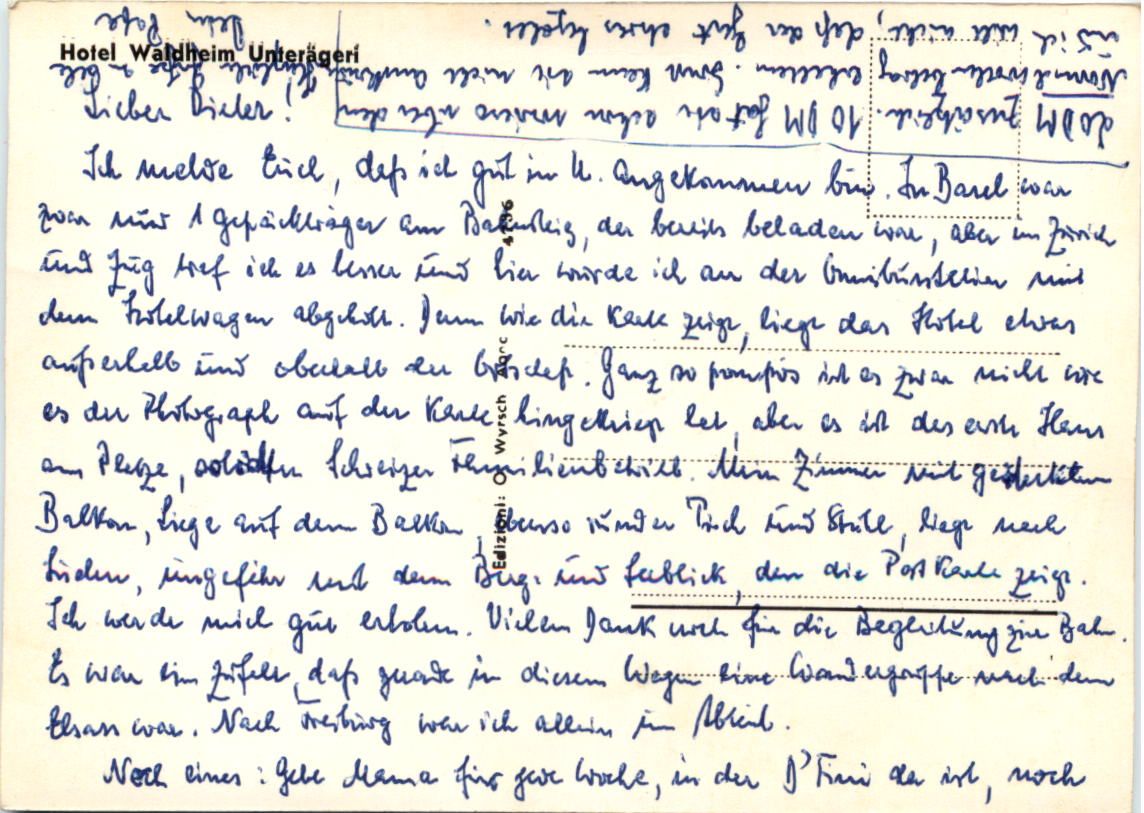 Hotel Waldheim Unterägeri
Lieber Dieter!
Ich melde Euch, daß ich gut in U. angekommen bin. In Basel war
zwar nur 1 Gepäckträger am Bahnsteig, der bereits beladen war, aber in Zürich
und Zug traf ich es besser und hier wurde ich an der Omnibusstation mit
dem Hotelwagen abgeholt. Denn wie die Karte zeigt, liegt das Hotel etwas
außerhalb und oberhalb der Ortschaft. Ganz so pompös ist es zwar nicht wie
es der Photograph auf der Karte hingekriegt hat, aber es ist das erste Haus
am Platze, solider Schweizer Familienbetrieb. Mein Zimmer mit
Balkon, Liege auf dem Balkon, ebenso runder Tisch und Stuhl, liegt nach
Süden, ungefähr mit dem Berg- und Seeblick, den die Postkarte zeigt.
Ich werde mich gut erholen. Vielen Dank noch für die Begleitung zur Bahn.
Es war ein Zufall, daß gerade in diesem Wagen eine Wandergruppe nach dem
Elsass war. Nach Freiburg war ich allein im Abteil.
Noch eines: Gebe Mama für jede Woche, in der D' Fini da ist, noch
20 DM zusätzlich. 10 DM hat sie schon über den
Normal Wochenbetrag erhalten. Sonst kann sie nicht auskommen
und ich will nicht, daß der Gast etwas
Herzliche Grüße
Dein Papa
Edizioni: O. Wyrsch
4796